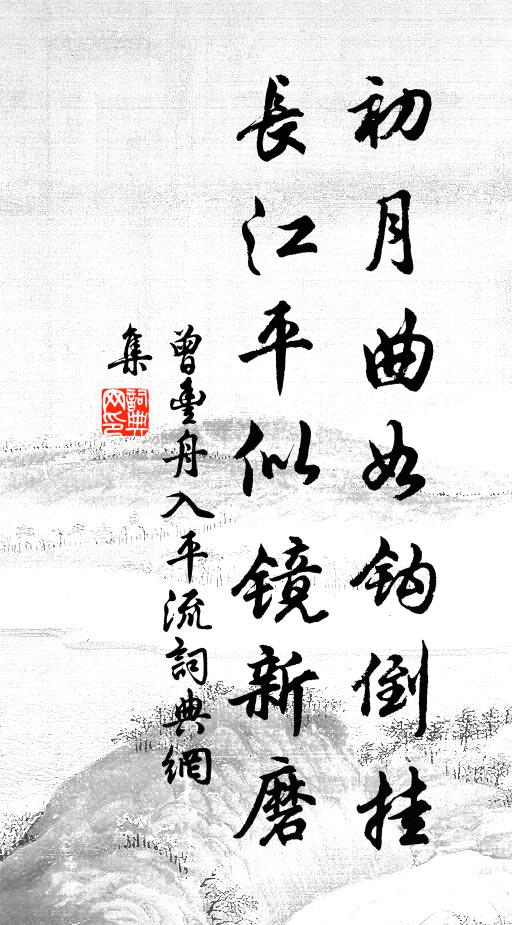 初月曲如鈎倒挂
長江平似鏡新磨
曾豐舟入平流詞典網
集
詞典
网印